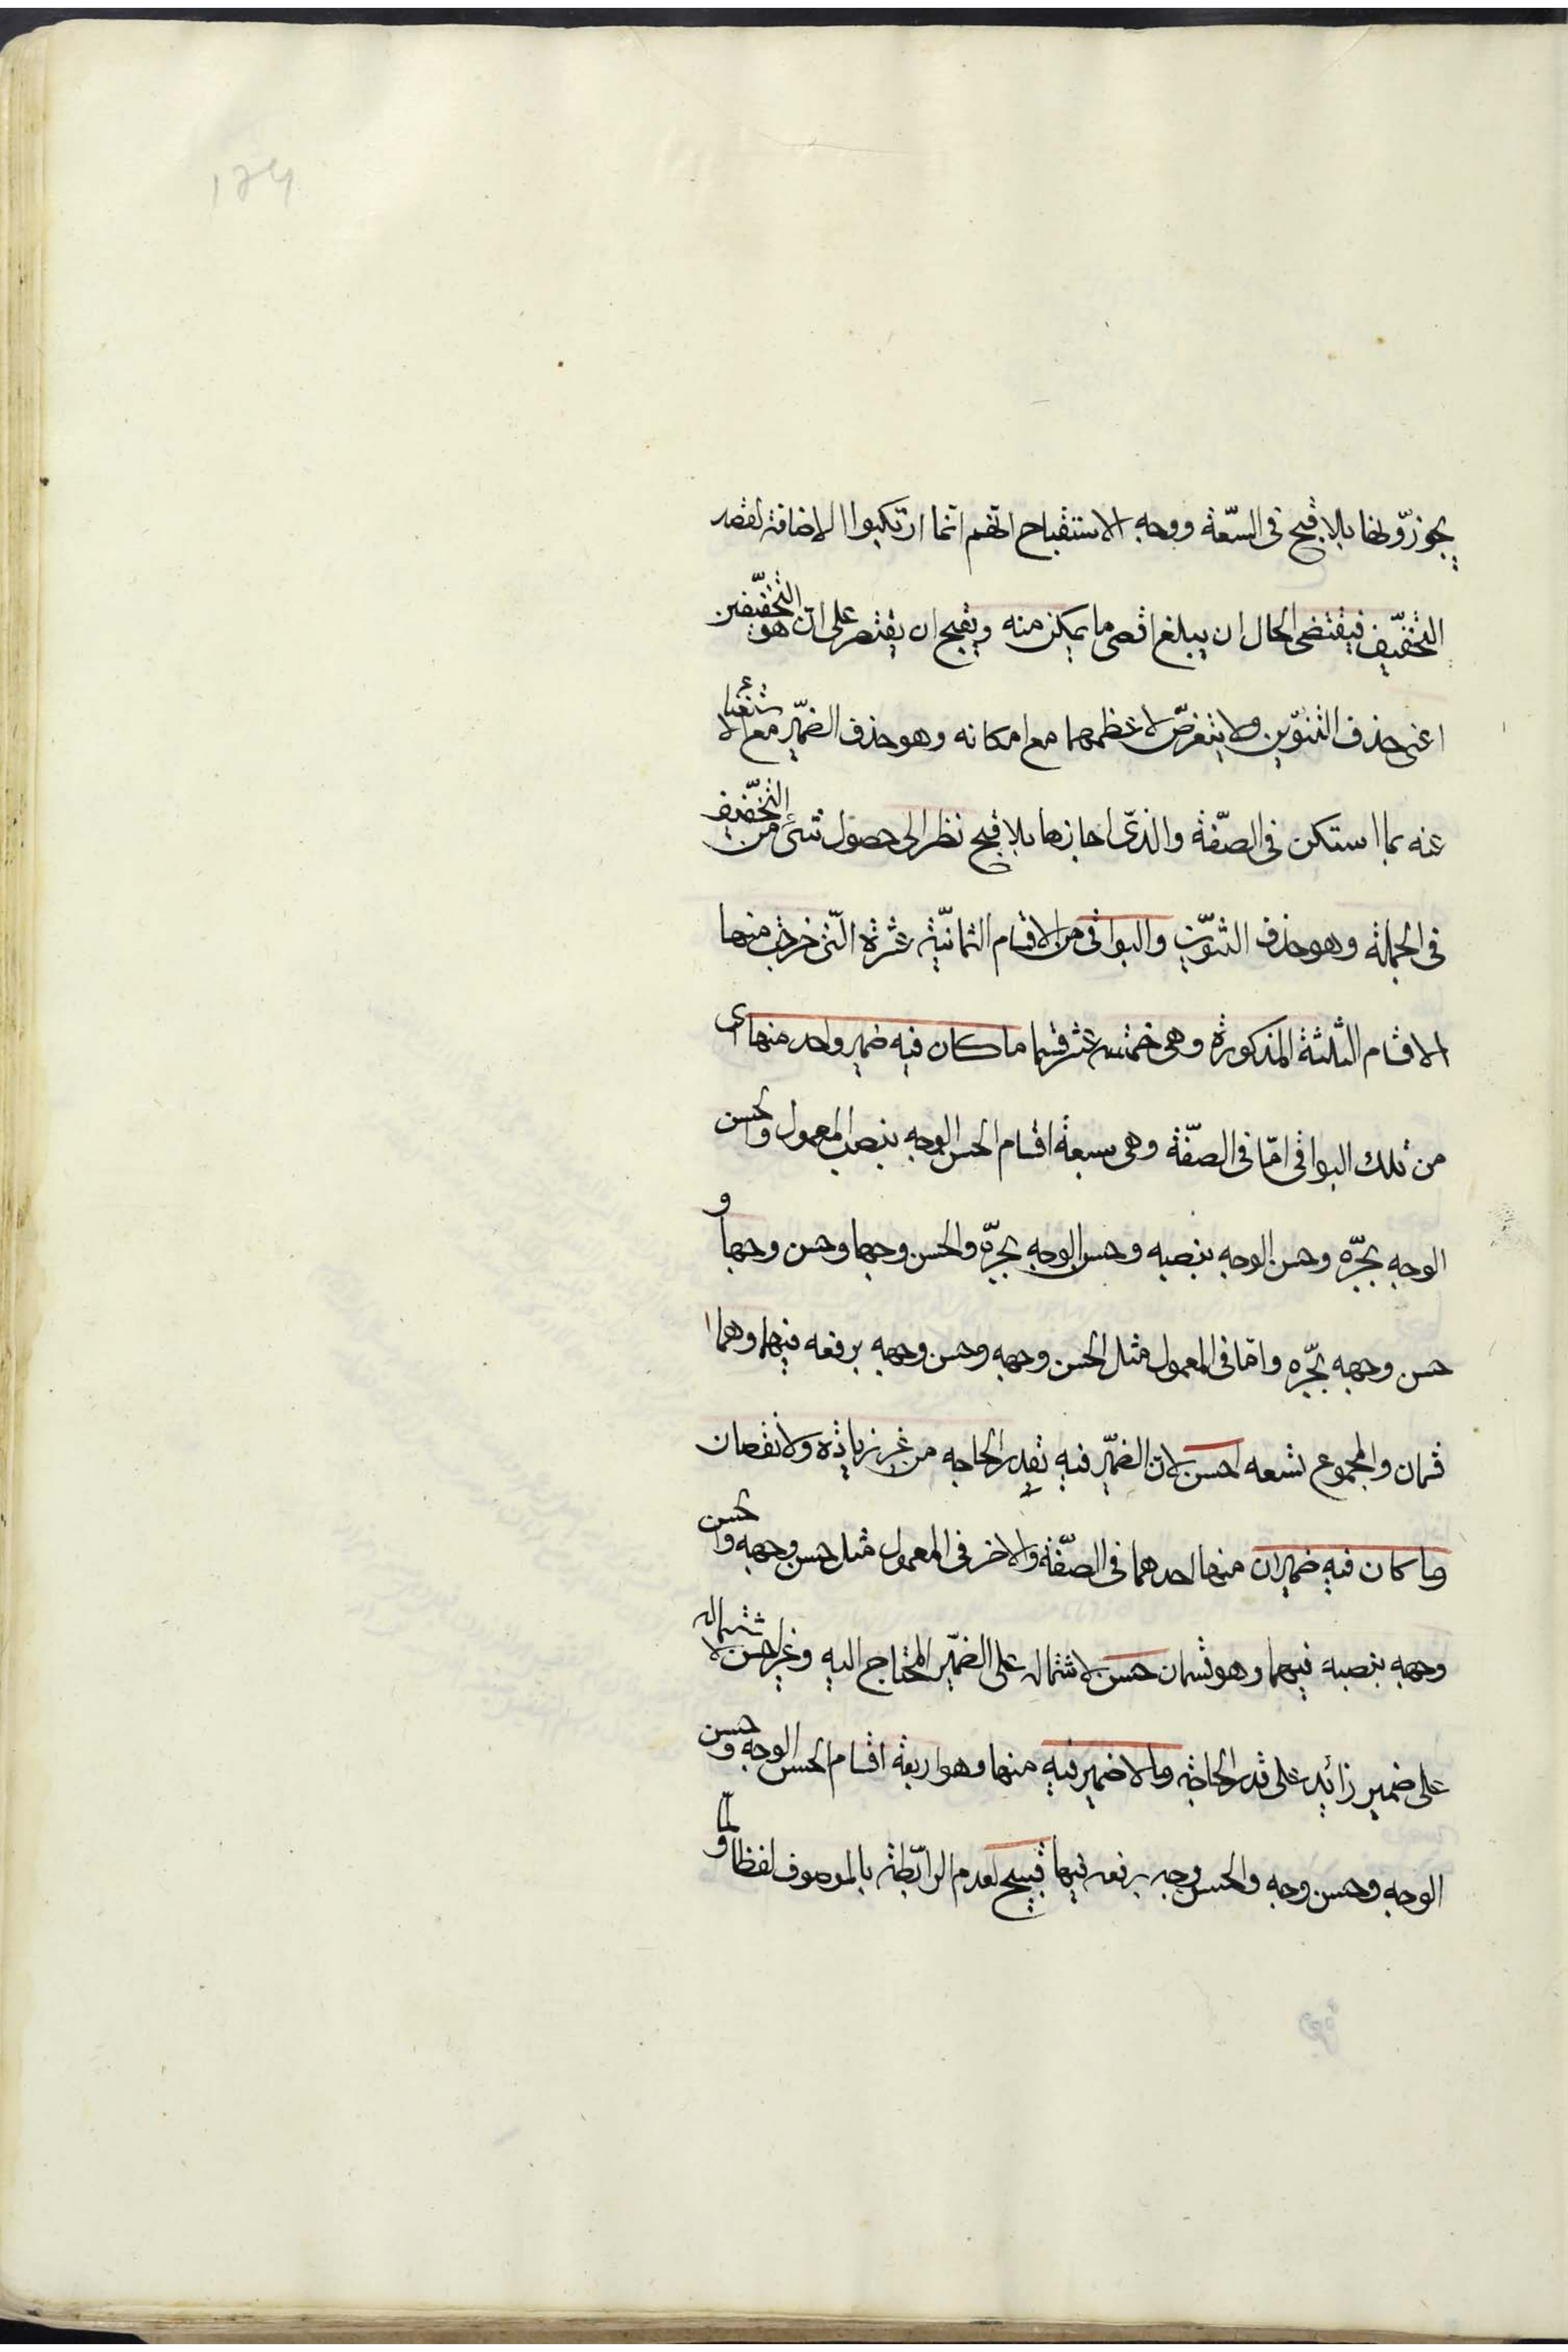 يجوزونها بلا قبح فى السّعة ووجه الاستقباح انهم انّما ارتكبوا الاضافة لقصد
التخفيف فيقتضى الحال ان يبلغ اقصى ما يمكن منه ويقبح ان يقتصر على اهون التخفيفين
اعنى حذف التنوين ولا يتعرّض لاعظمهما مع امكانه وهو حذف الضمير مع الاستغناء
عنه بما استكن فى الصّفة والذى اجازها بلا قبح نظر الى حصول شئ من التخفيف
فى الجملة وهو حذف التنوين والبواقى من الاقسام الثمانية عشرة التى خرجت منها
الاقسام الثلثة المذكورة وهى خمسة عشر قسما ما كان فيه ضمير واحد منها اى
من تلك البواقى امّا فى الصّفة وهى سبعة اقسام الحسن الوجه بنصب المعمول والحسن
الوجه بجرّه وحسن الوجه بنصبه وحسن الوجه بجرّه والحسن وجها وحسن وجها و
حسن وجهه بجرّه وامّا فى المعمول مثل الحسن وجهه وحسن وجهه برفعه فيهما وهما
قسمان والمجموع تسعه احسن لانّ الضمير فيه بقدر الحاجه من غير زيادة ولا نقصان
وما كان فيه ضميران منها احدهما فى الصّفة والاخر فى المعمول مثل حسن وجهه والحسن
وجهه بنصبه فيهما وهو قسمان حسن لاشتماله على الضمير المحتاج اليه وغير احسن لاشتماله
على ضمير زائد على قدر الحاجة وما لا ضمير فيه منها وهو اربعة اقسام الحسن الوجه وحسن
الوجه وحسن وجه والحسن وجه برفعه فيها قبيح لعدم الرابطة بالموصوف لفظا ولمّا